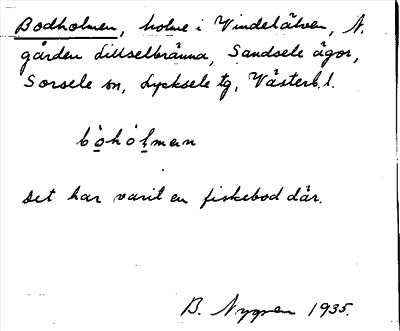 Bodholmen, holme i Vindelälven, N.
gården Lillselbränna, Sandsele ägor,
Sorsele sn, Lycksele tg, Västerb. l.
bòhólman
Det har varit en fiskebod där.
B. Nygren 1935.